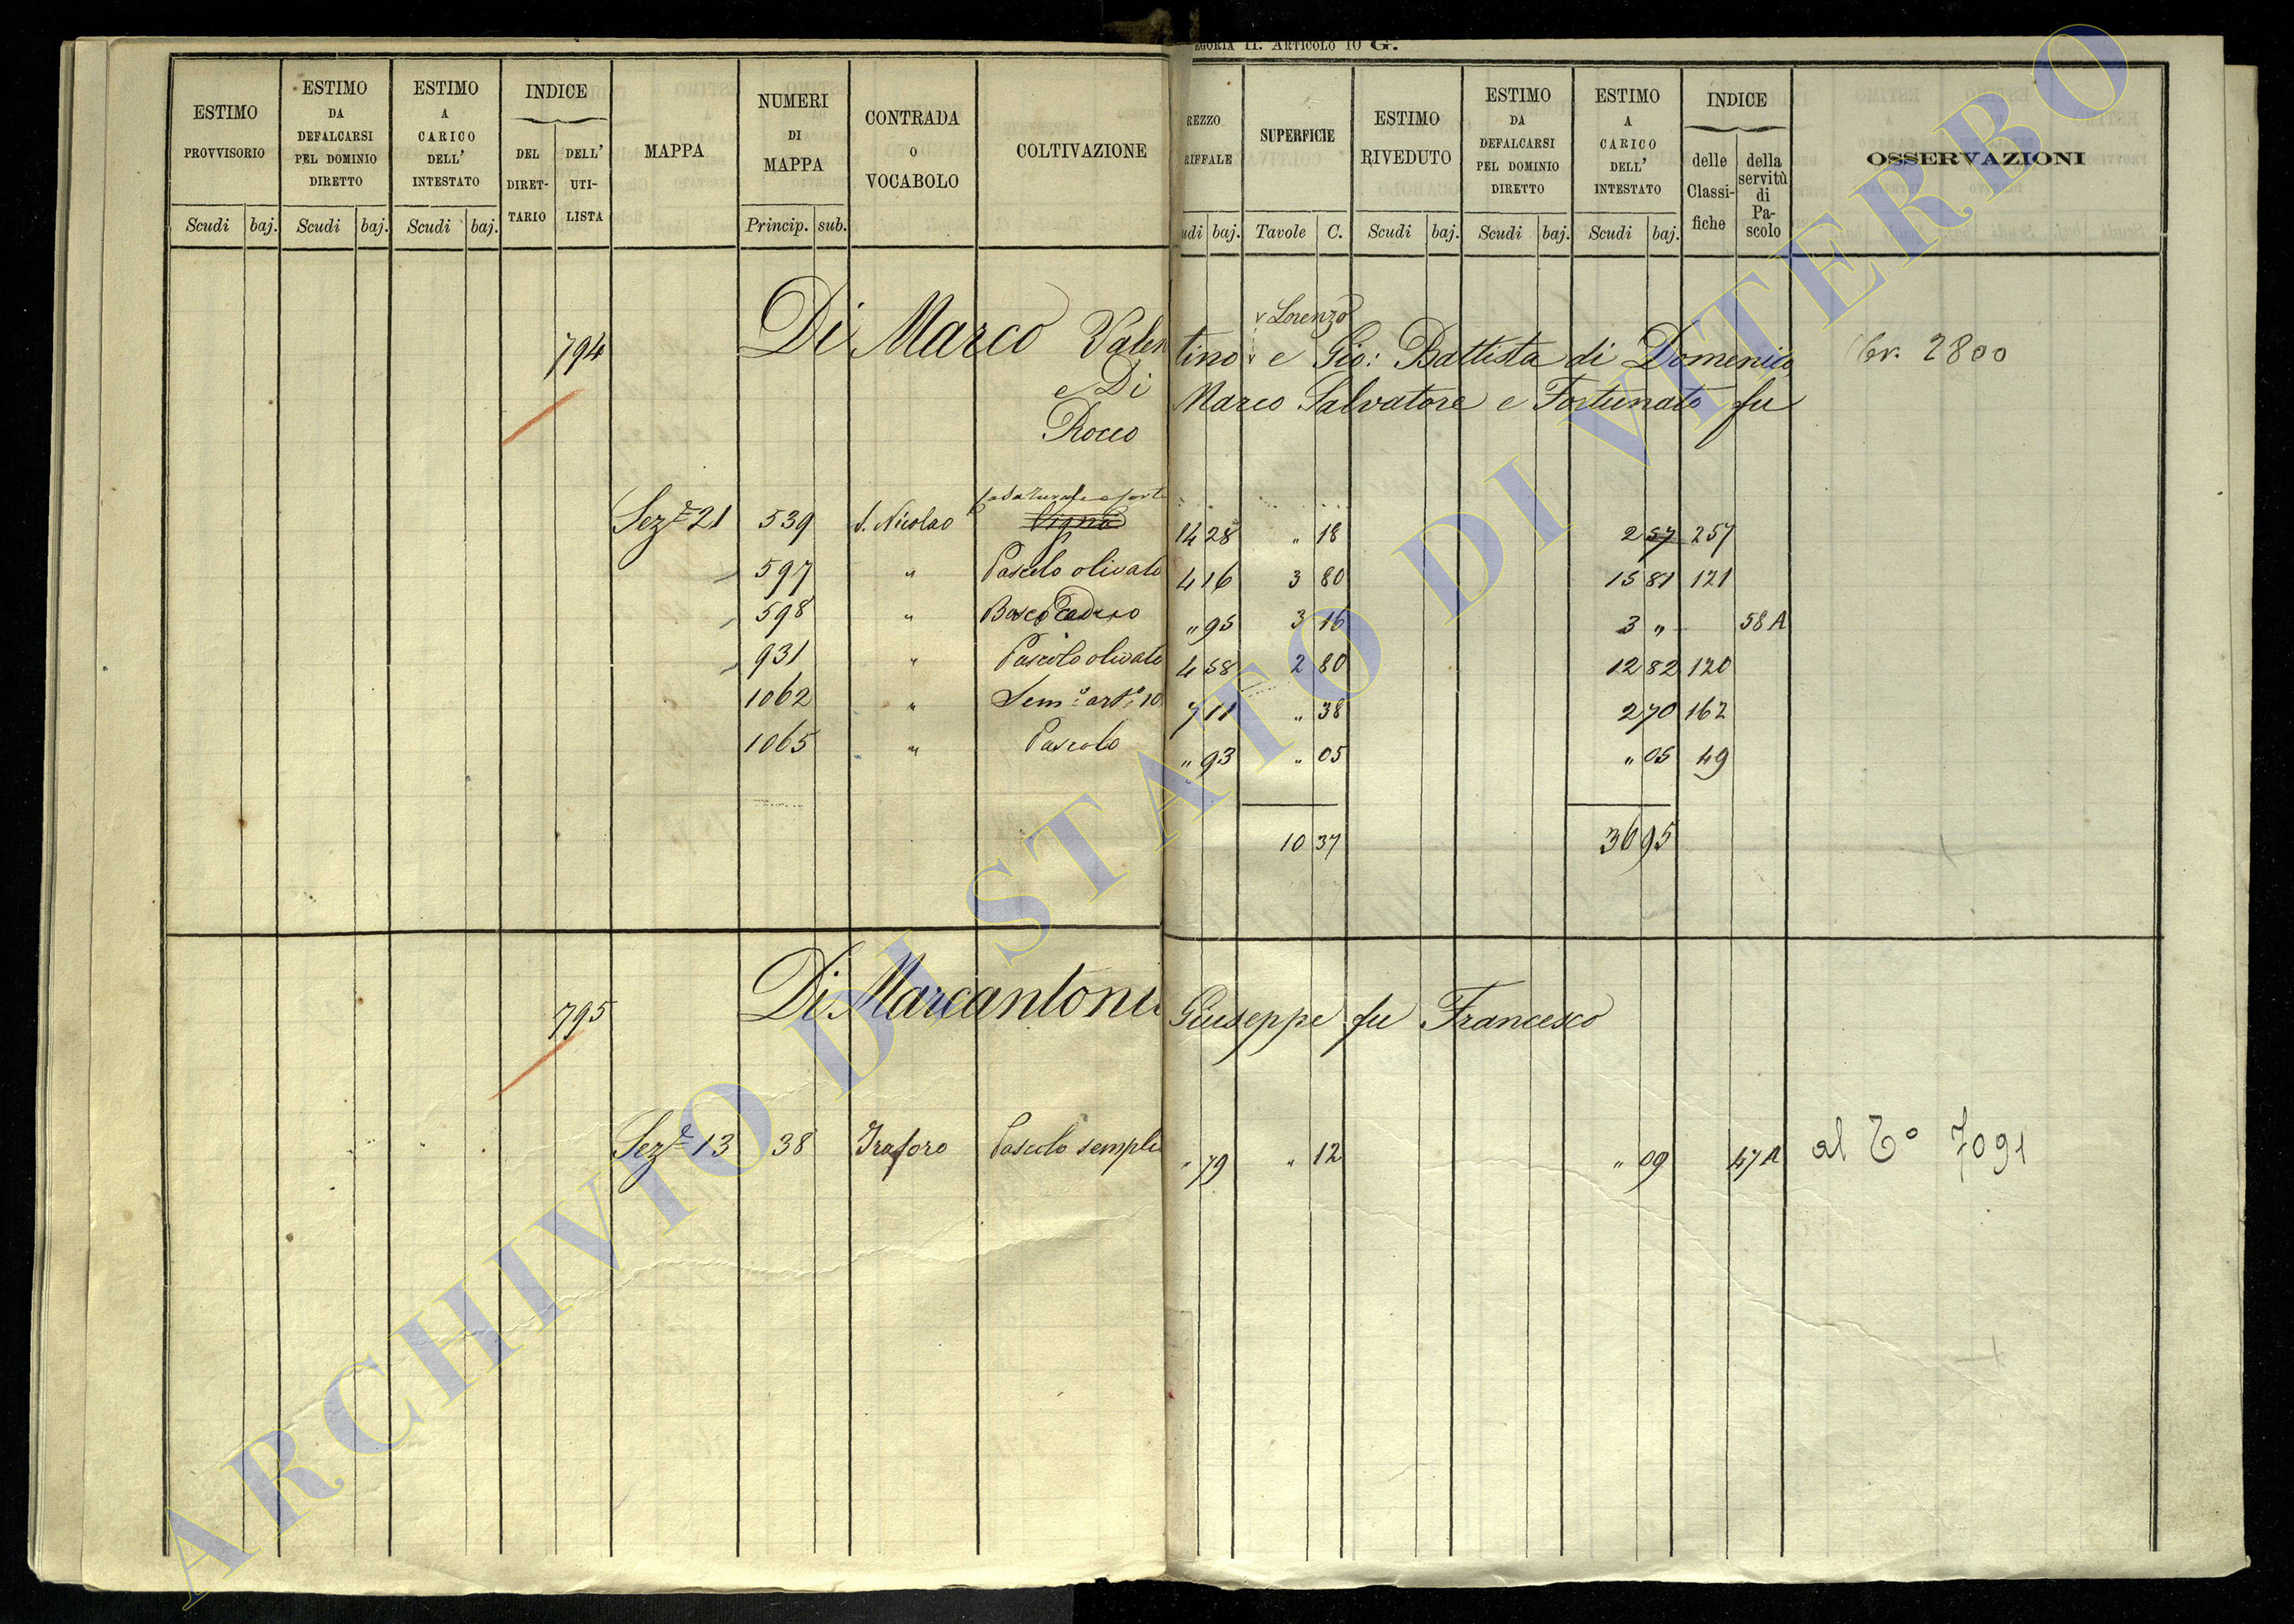 EGORIA II. ARTICOLO 10 G.
ESTIMO PROVVISORIO
ESTIMO DA DEFALCARSI PEL DOMINIO DIRETTO
ESTIMO A CARICO DELL' INTESTATO
INDICE
DEL DIRET-TARIO
DELL' UTI-LISTA
MAPPA
NUMERI DI MAPPA
CONTRADA O VOCABOLO
COLTIVAZIONE
REZZO RIFFALE
SUPERFICIE
ESTIMO RIVEDUTO
ESTIMO DA DEFALCARSI PEL DOMINIO DIRETTO
ESTIMO A CARICO DELL' INTESTATO
INDICE
delle Classi-fiche
della servitù di Pa-scolo
OSSERVAZIONI
Scudi baj. Scudi baj. Scudi baj. Princip. sub. udi baj. Tavole C. Scudi baj. Scudi baj. Scudi baj.
Lorenzo
794 Di Marco Valentino e Gio: Battista di Domenico 2800
e Di Marco Salvatore e Fortunato fu
Rocco
Sez.e 21 539 S. Nicolao Vigna 14 28 " 18 2 57 257
597 " Pascolo olivato 4 16 3 80 15 81 121
598 " Bosco Ceduo " 95 3 16 3 " 58 A
931 " Pascolo olivato 4 58 2 80 12 82 120
1062 " Sem.o art.o 10 7 11 " 38 2 70 162
1065 " Pascolo " 93 " 05 " 05 49
10 37 36 95
795 Di Marcantonio Giuseppe fu Francesco
Sez.e 13 38 Traforo Pascolo semplic " 79 " 12 " 09 47 A al T.o 7091
ARCHIVIO DI STATO DI VITERBO